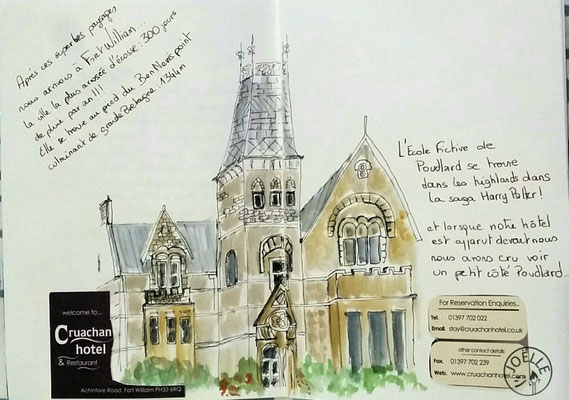 Après ces superbes paysages
nous arrivons à Fort William...
la ville la plus arrosée d'écosse : 300 jours
de pluie par an !!!
Elle se trouve au pied du Ben Nevis point
culminant de Grande Bretagne : 1344m
L'Ecole Fictive de
Poudlard se trouve
dans les highlands dans
la saga Harry Potter !
et lorsque notre hôtel
est apparut devant nous
nous avons cru voir
un petit côté Poudlard...
welcome to...
Cruachan
hotel
& Restaurant
Achintore Road, Fort William PH33 6RQ
For Reservation Enquiries...
Tel. 01397 702 022
Email. stay@cruachanhotel.co.uk
other contact details
Fax. 01397 702 239
Web. www.cruachanhotel.com
JOËLLE